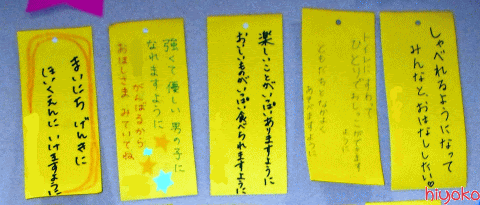 まいにち げんきに
ほいくえんに いけますように
強くて優しい 男の子に
なれますように
がんばるから
おほしさま みていてね
楽しいことがいっぱいありますように
おいしいものがいっぱい食べられますように
トイレにすわって
ひとりでおしっこができます
ように
ともだちとなかよく
あそべますように
しゃべれるようになって
みんなと、おはなししたい♡
hiyoko